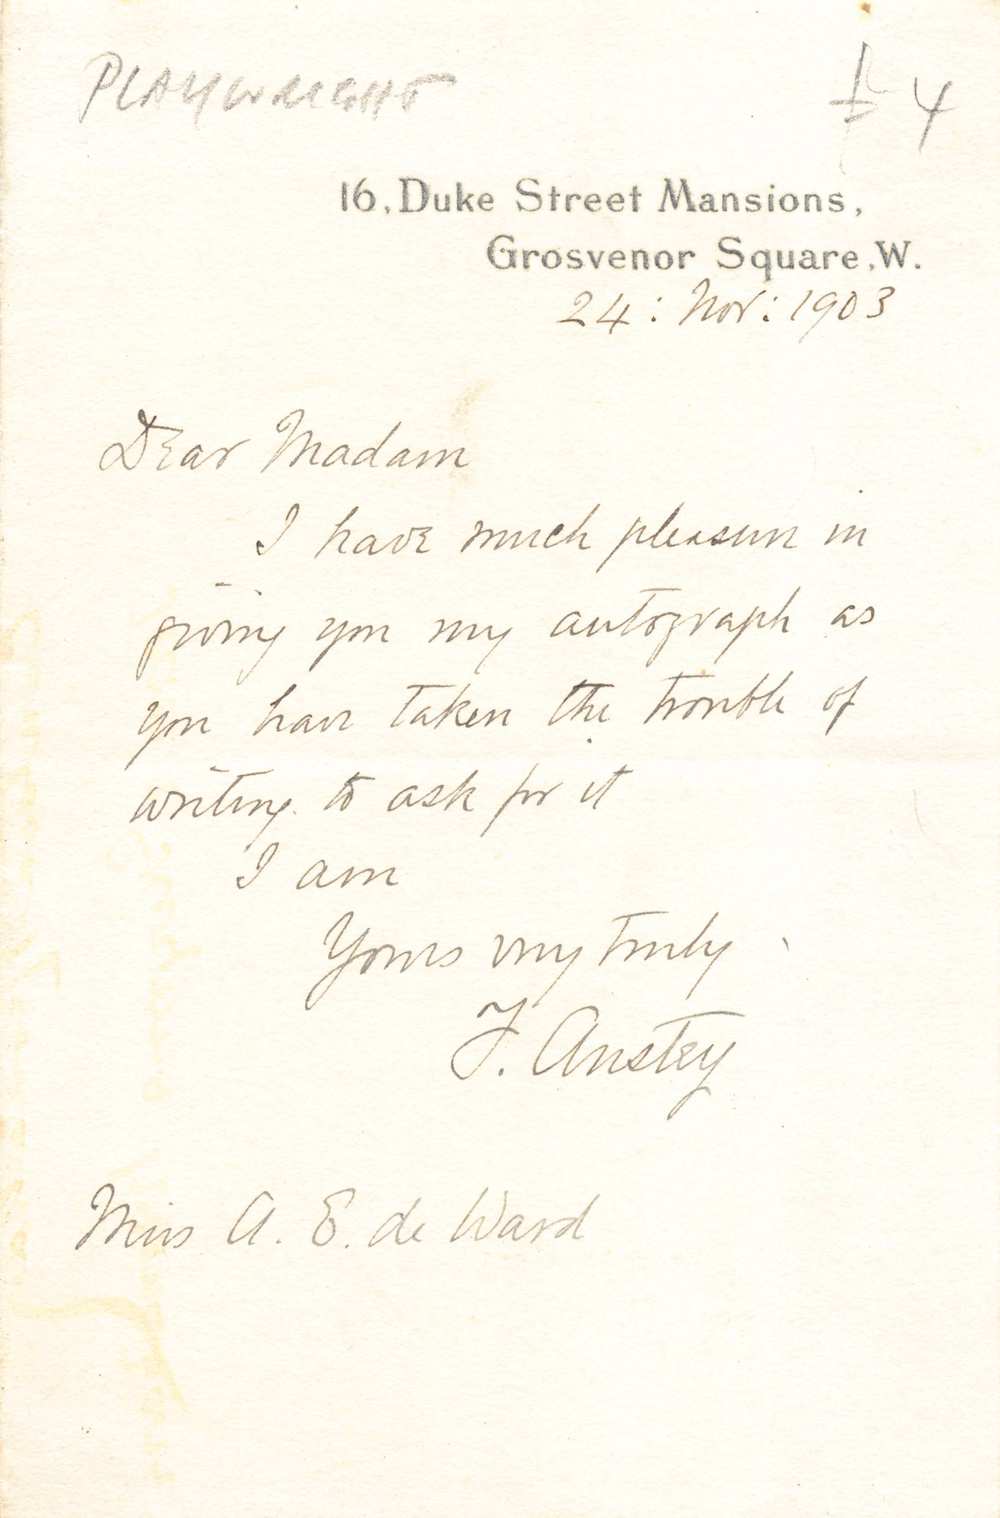 PLAYWRIGHT
£4
16, Duke Street Mansions,
Grosvenor Square, W.
24: Nov: 1903
Dear Madam
I have much pleasure in
giving you my autograph as
you have taken the trouble of
writing to ask for it
I am
Yours very truly
F. Anstey
Miss A. E. de Ward